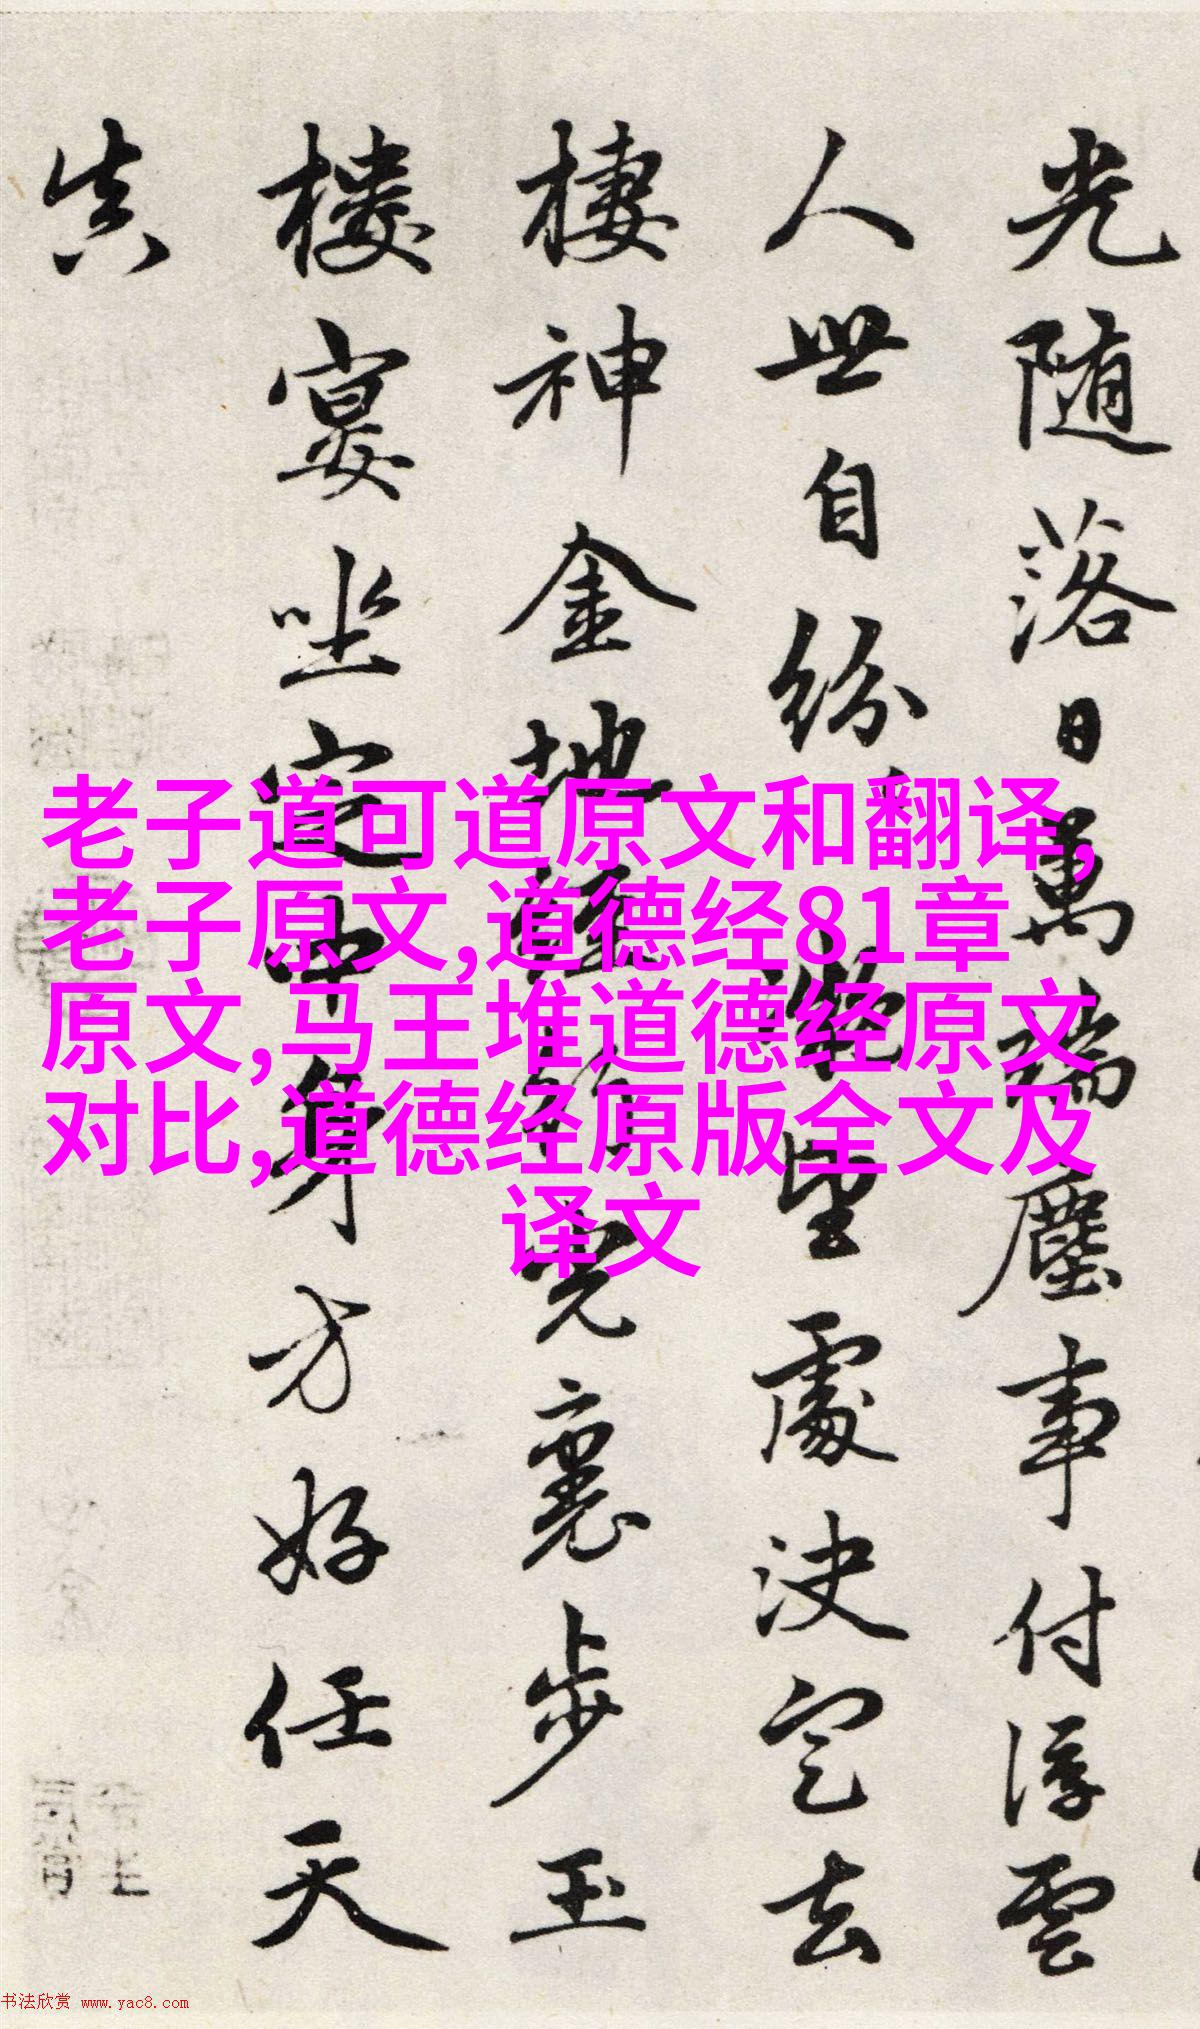 光随落日萬端塵事付浮雲
人世自紛望處決定去
棲神金地經行裏步玉
樓宴坐定中身方好任天
真
老子道可道原文和翻译,
老子原文,道德经81章
原文,马王堆道德经原文
对比,道德经原版全文及
译文
书法欣赏 www.yac8.com